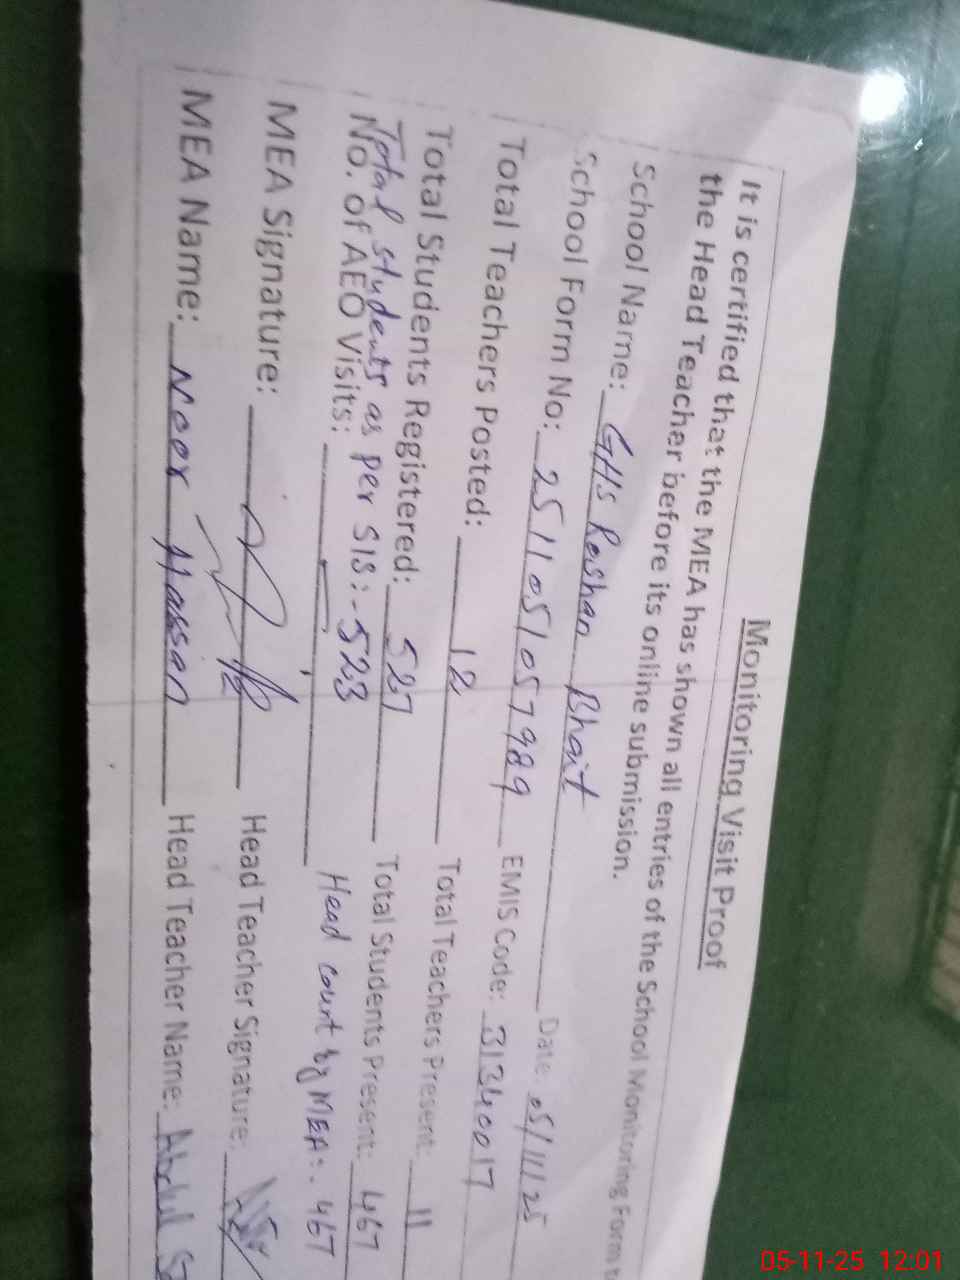 Monitoring Visit Proof
It is certified that the MEA has shown all entries of the School Monitoring Form to
the Head Teacher before its online submission.
School Name: GHS Roshan Bhait Date: 05/11/25
School Form No: 2511051057989 EMIS Code: 31340017
Total Teachers Posted: 12 Total Teachers Present: 11
Total Students Registered: 527 Total Students Present: 467
Total students as per SIS:- 523
No. of AEO Visits: Head count by MEA:- 467
MEA Signature: Head Teacher Signature:
MEA Name: Noor Hassan Head Teacher Name: Abdul
05-11-25 12:01